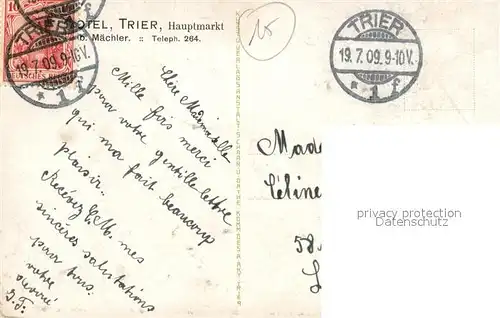 HOTEL, TRIER, Hauptmarkt
Mächler. :: Teleph. 264.
TRIER
19.7.09.9-10V.
* 1 f
DEUTSCHES REICH
TRIER
19.7.09.9-10V.
* 1 f
15
Chère Mademoiselle
Mille fois merci
pour votre gentille lettre
qui m'a fait beaucoup
plaisir.
Recevez C. M. mes
sincères salutations
pour tous.
votre
dévoué
J.F.
Mad
Céline
58
L
privacy protection
Datenschutz